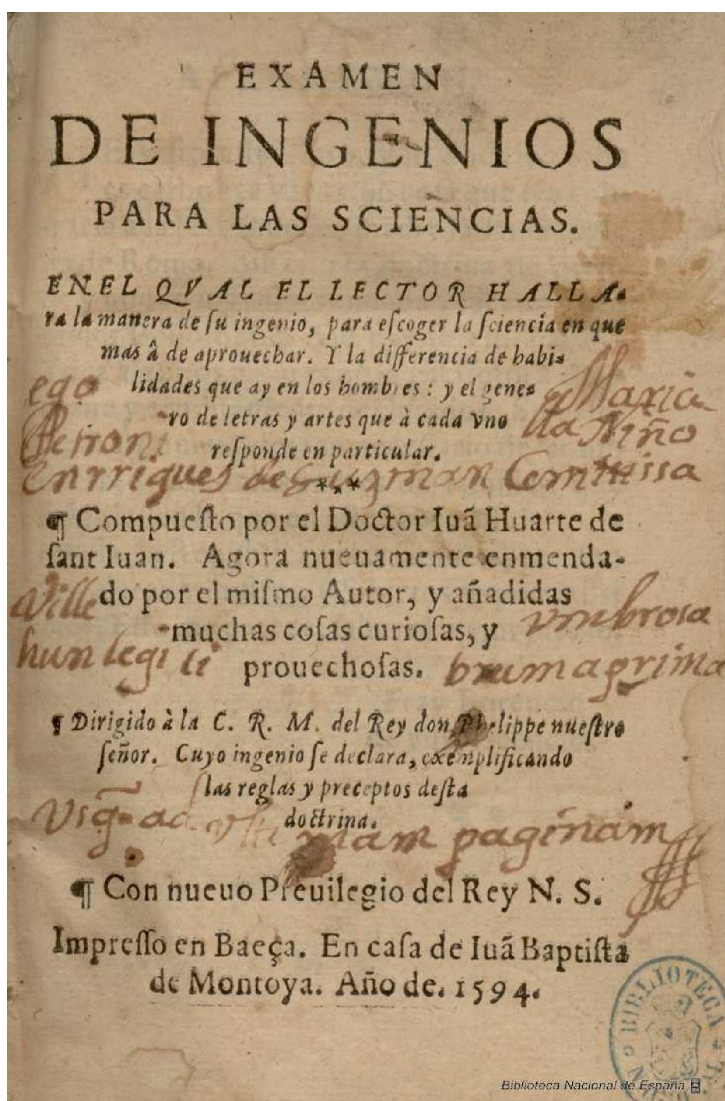 EXAMEN
DE INGENIOS
PARA LAS SCIENCIAS.
EN EL QVAL EL LECTOR HALLA-
ra la manera de ſu ingenio, para eſcoger la ſciencia en que
mas â de aprouechar. Y la differencia de habi-
lidades que ay en los hombres: y el gene-
ro de letras y artes que à cada vno
reſponde en particular.
ego Maria
Petroni lla Niño
Enrriques de Guzman Comitissa
¶ Compueſto por el Doctor Iuã Huarte de
ſant Iuan. Agora nueuamente enmenda-
do por el miſmo Autor, y añadidas
muchas coſas curioſas, y
prouechoſas.
Ville vmbrosa
hun legi li brum a prima
¶ Dirigido à la C. R. M. del Rey don Phelippe nueſtro
ſeñor. Cuyo ingenio ſe declara, exemplificando
las reglas y preceptos deſta
doctrina.
Vsq̃ ad vlti mam paginam
¶ Con nueuo Preuilegio del Rey N. S.
Impreſſo en Baeça. En caſa de Iuã Baptiſta
de Montoya. Año de. 1594.
BIBLIOTECA
Biblioteca Nacional de España